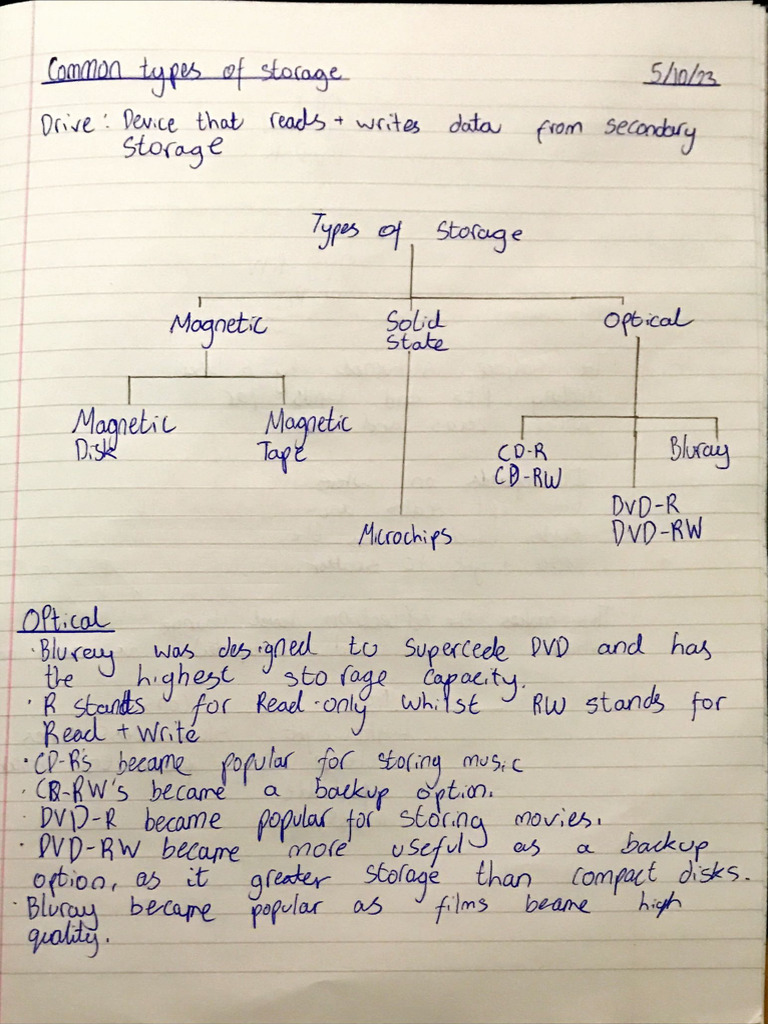 Common types of storage 5/10/23
Drive: Device that reads + writes data from secondary
storage
Types of Storage
Magnetic Solid Optical
State
Magnetic Magnetic CD-R Bluray
Disk Tape CD-RW
DVD-R
Microchips DVD-RW
Optical
· Bluray was designed to supercede DVD and has
the highest storage capacity.
· R stands for Read-only whilst RW stands for
Read + Write
· CD-R's became popular for storing music
· CD-RW's became a backup option.
· DVD-R became popular for storing movies.
· DVD-RW became more useful as a backup
option, as it greater storage than compact disks.
· Bluray became popular as films beame high
quality.